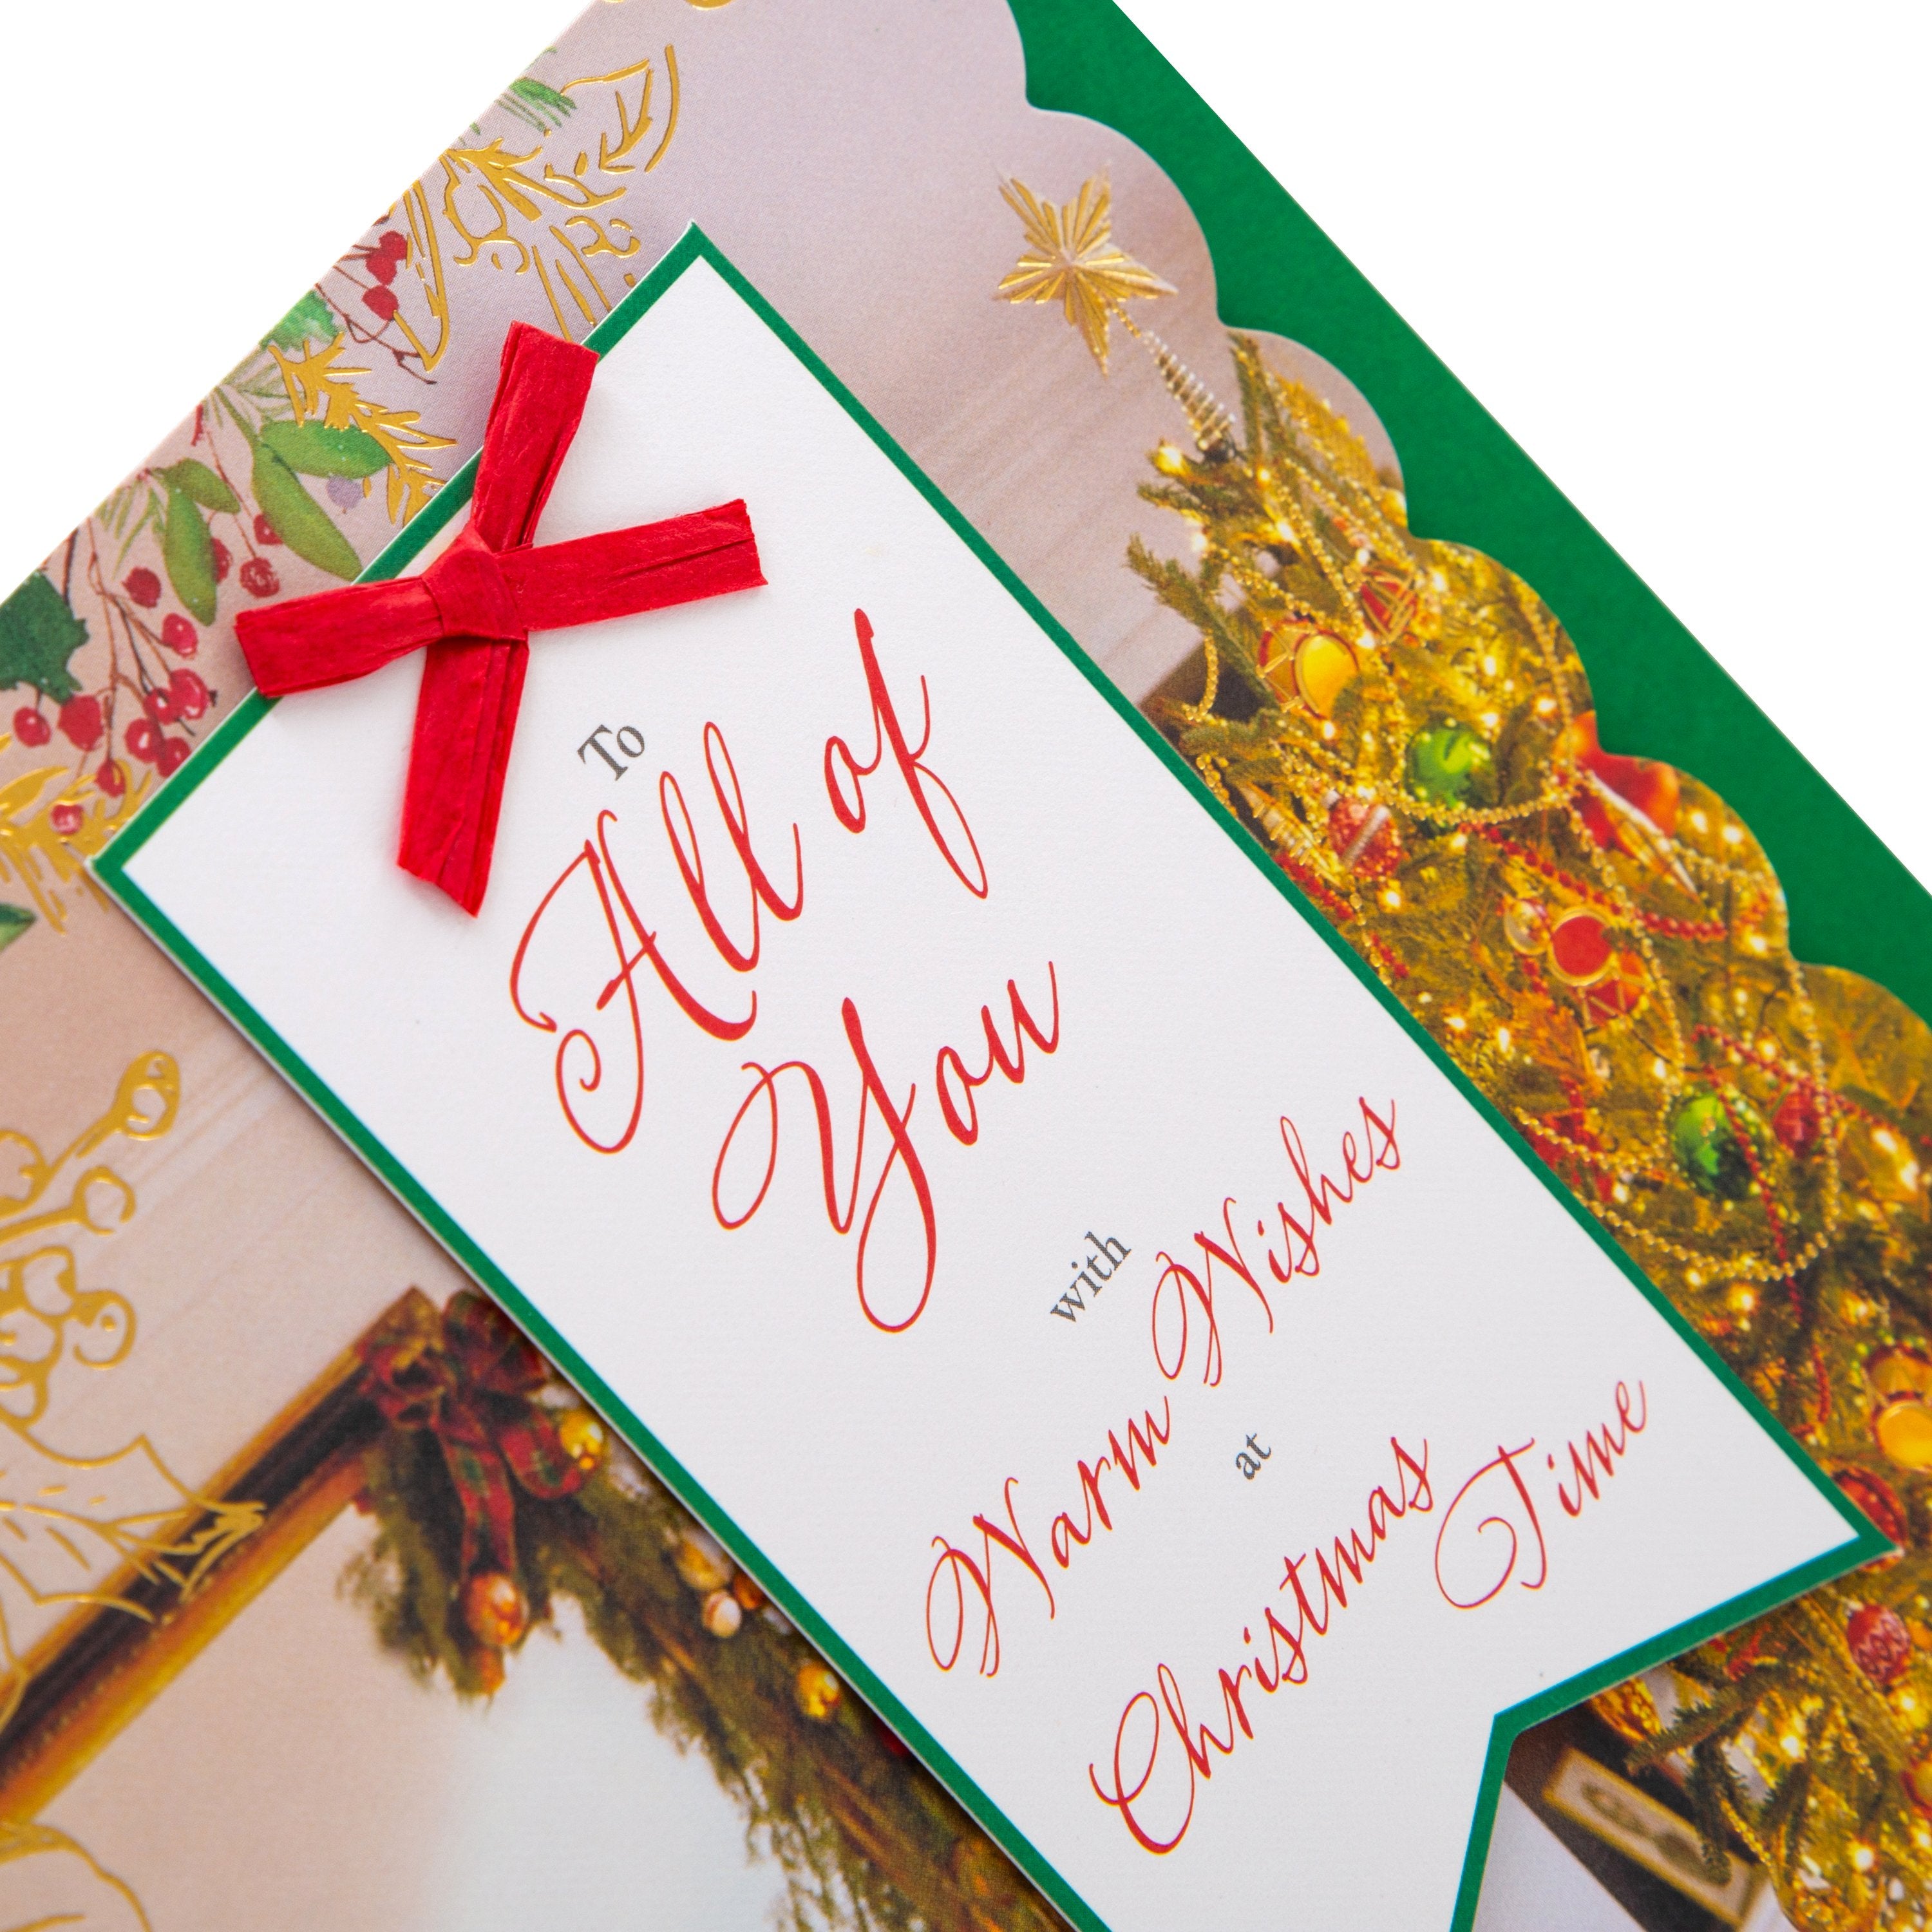 To
All of
You
with
Warm Wishes
at
Christmas Time